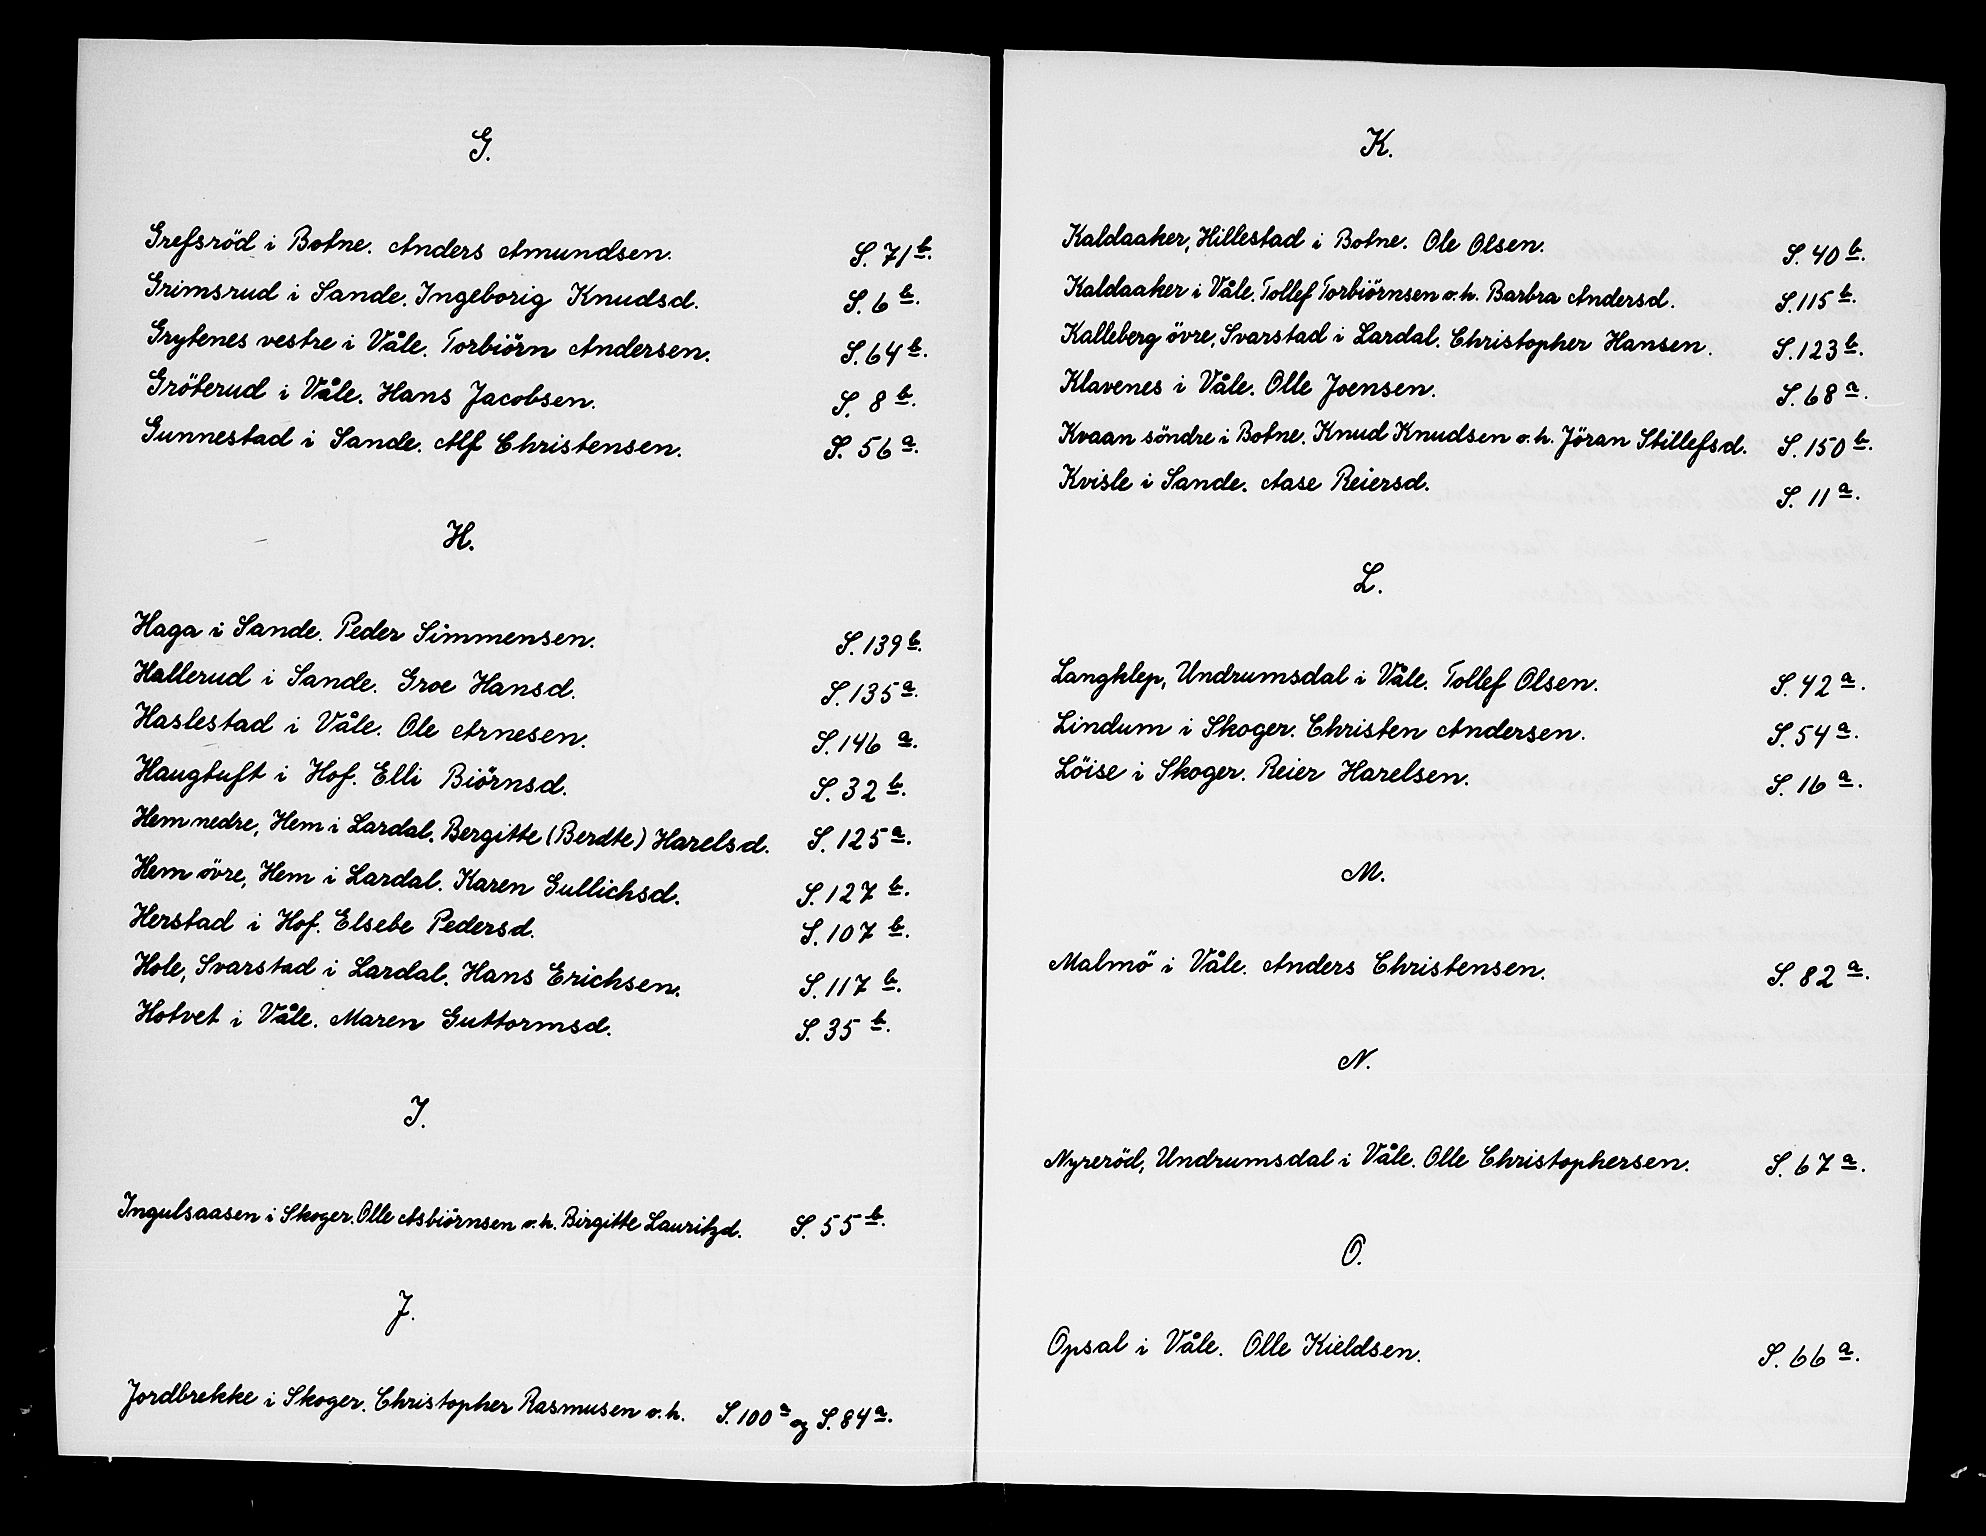 G.
Grefsröd i Botne. Anders Amundsen. S. 71 b.
Grimsrud i Sande. Ingeborig Knudsd. S. 6 b.
Grytenes vestre i Våle. Torbiörn Andersen. S. 64 b.
Gröterud i Våle. Hans Jacobsen. S. 8 b.
Gunnestad i Sande. Alf Christensen. S. 56 a.
H.
Haga i Sande. Peder Simmensen. S. 139 b.
Hallerud i Sande. Groe Hansd. S. 135 a.
Haslestad i Våle. Ole Arnesen. S. 146 a.
Haugtuft i Hof. Elli Biörnsd. S. 32 b.
Hem nedre, Hem i Lardal. Bergitte (Berdte) Harelsd. S. 125 a.
Hem övre, Hem i Lardal. Karen Gullichsd. S. 127 b.
Herstad i Hof. Elsebe Pedersd. S. 107 b.
Hole, Svarstad i Lardal. Hans Erichsen. S. 117 b.
Hotvet i Våle. Maren Guttormsd. S. 35 b.
I.
Ingulsaasen i Skoger. Olle Asbiörnsen o.h. Birgitte Lauritzd. S. 55 b.
J.
Jordbrekke i Skoger. Christopher Rasmusen o.h. S. 100 a og S. 84 a.
K.
Kaldaaker, Hillestad i Botne. Ole Olsen. S. 40 b.
Kaldaaker i Våle. Tollef Torbiörnsen o.h. Barbra Andersd. S. 115 b.
Kalleberg övre, Svarstad i Lardal. Christopher Hansen. S. 123 b.
Klavenes i Våle. Olle Joensen. S. 68 a.
Kvaan söndre i Botne. Knud Knudsen o.h. Jöran Stillefsd. S. 150 b.
Kvisle i Sande. Aase Reiersd. S. 11 a.
L.
Langklep, Undrumsdal i Våle. Tollef Olsen. S. 42 a.
Lindum i Skoger. Christen Andersen. S. 54 a.
Löise i Skoger. Reier Harelsen. S. 16 a.
M.
Malmö i Våle. Anders Christensen. S. 82 a.
N.
Nyreröd, Undrumsdal i Våle. Olle Christophersen. S. 67 a.
O.
Opsal i Våle. Olle Kieldsen. S. 66 a.